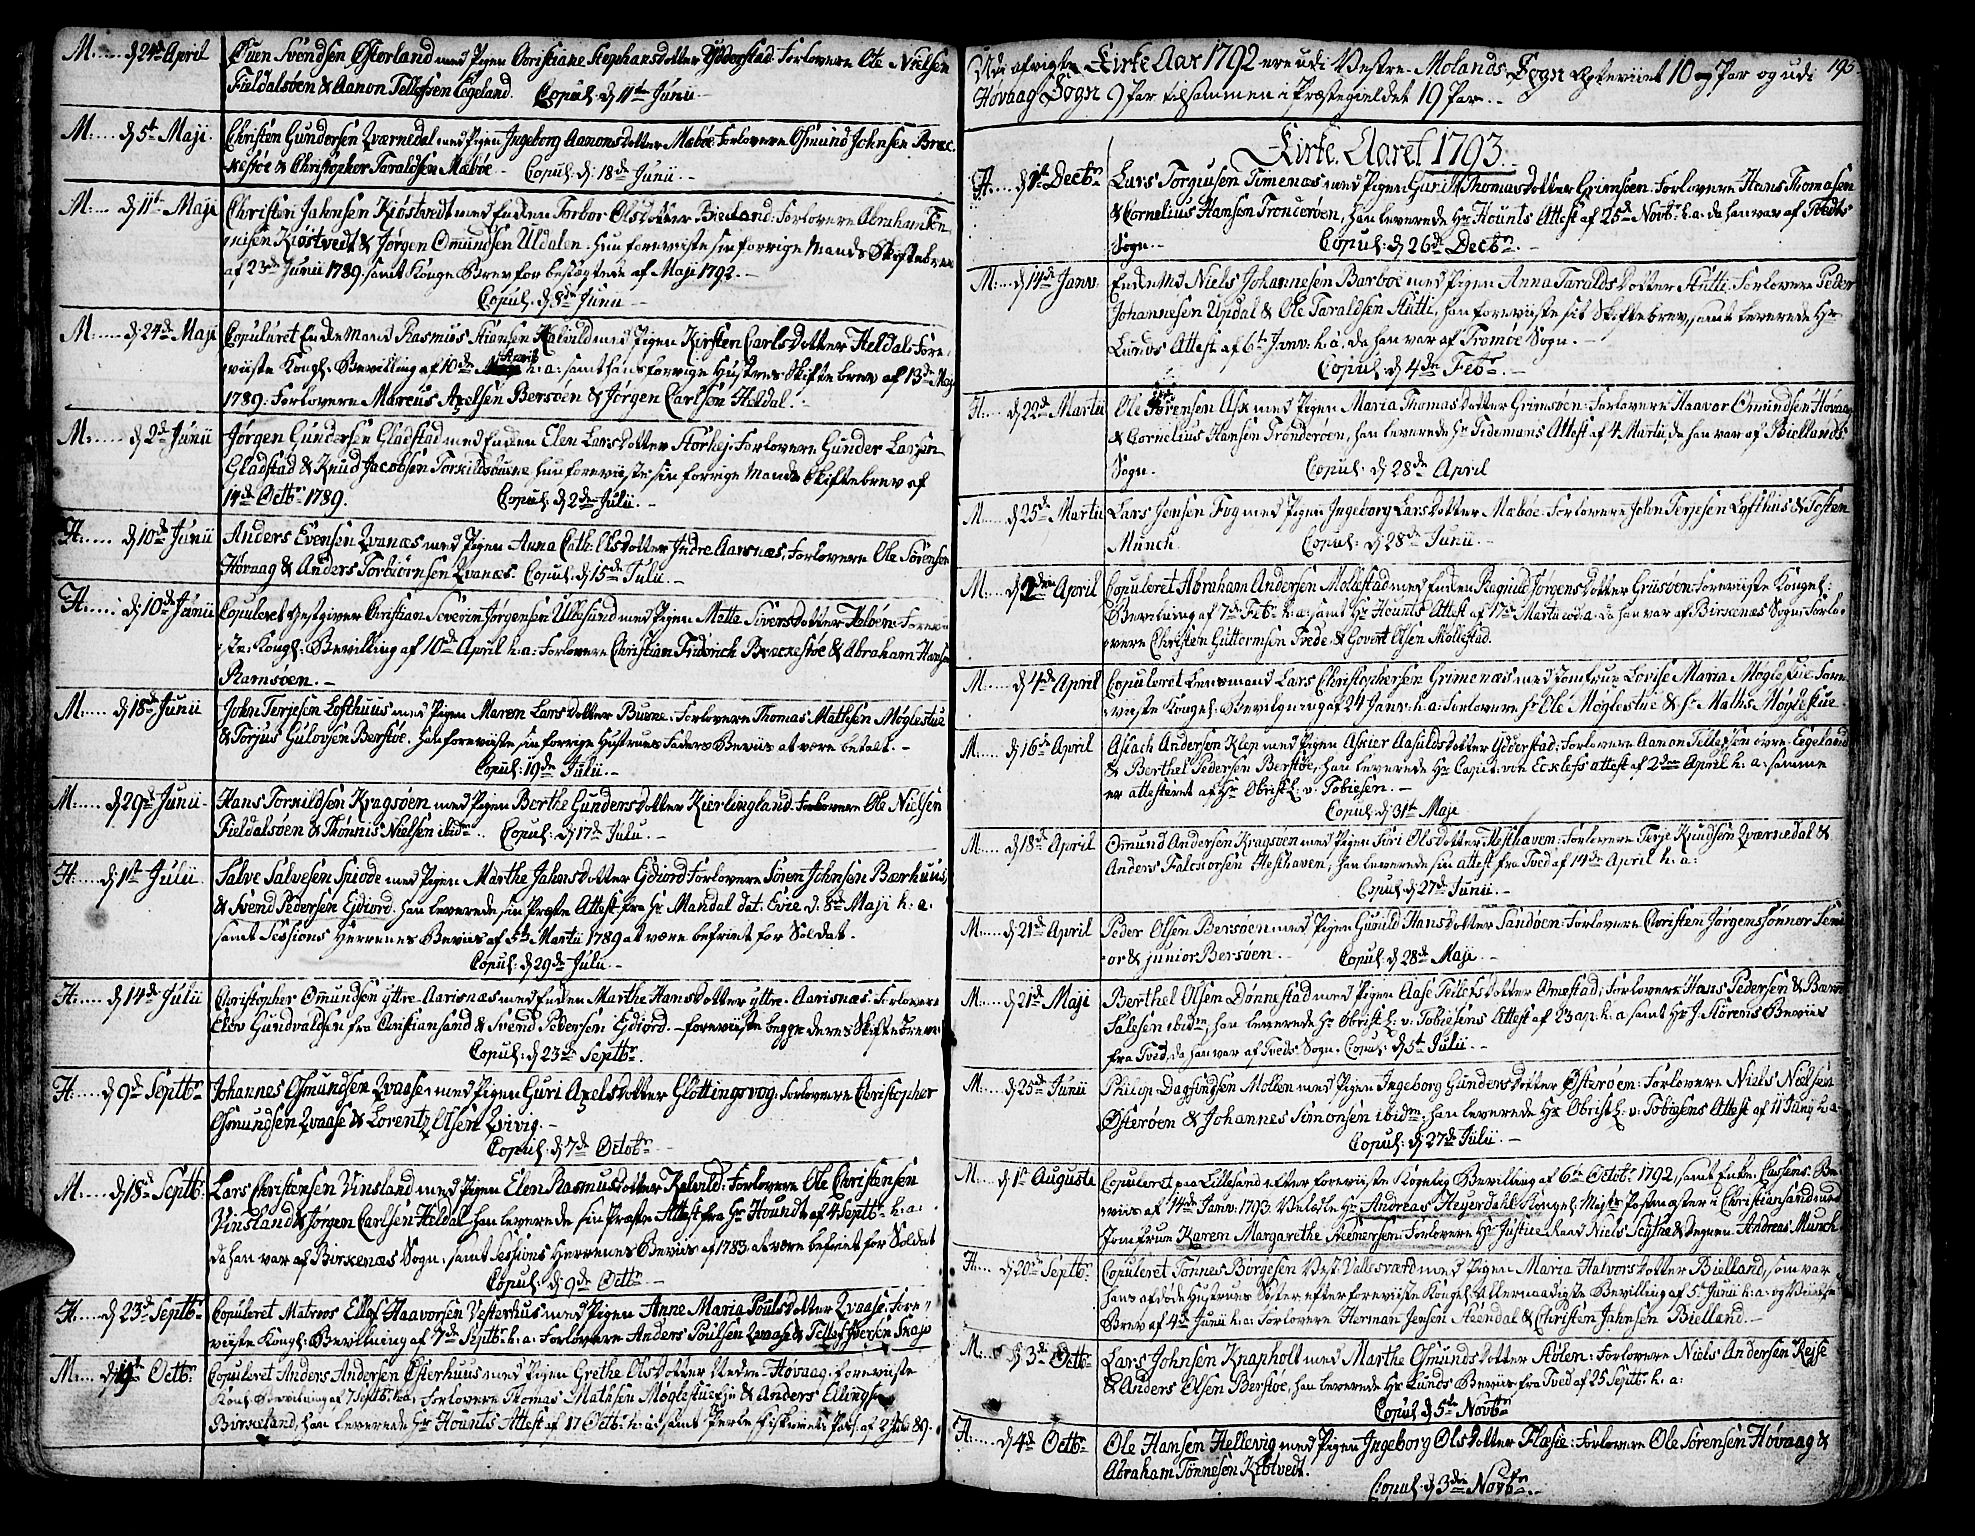 M. d. 24de April Even Svendsen Østerland med Pigen Christiane Stephansdotter Ydderstad Forlovere Ole Nielsen
Fieldalsøen & Aanon Tellefsen Eegeland. Copul: d. 11te Junii
M. d. 5te Maji. Christen Gundersen Qværnedal med Pigen Ingeborg Aanonsdotter Mæbøe Forlovere Osmund Johnsen Bræc-
kestøe & Christopher Taraldsen Mæbøe. Copul: d. 18de Junii
M. d. 11te Maji Christen Jahnsen Kiøstvedt med Enken Torbor Olsdotter Bieland: Forlovere Abraham Tøn-
nisen Kiøstvedt & Jørgen Omundsen Uldalen. hun foreviiste sin forrige Mands Skiftebrev
af 23de Junii 1789, samt Konge Brev for besøgtede af Maji 1792.
Copul. d. 8de Junii
M. d. 24de Maji Copuleret Enkemand Rasmus Stiansen Kalvild med Pigen Kirsten Carlsdotter Heldal Fore-
viiste Kongl. Bevilling af 10de April h.a: samt hans forrige Hustrues Skiftebrev af 13de Maj
1789: Forlovere Marcus Axelsen Bersøen & Jørgen Carlsen Heldal.
M. d. 2de Junii Jørgen Gundersen Gladstad med Enken Elen Larsdotter Hørhej Forlovere Gunder Larsen
Gladstad & Knud Jacobsen Torkildsbuene hun foreviiste sin forrige Mands Skiftebrev af
14de Octbr 1789. Copul: d. 2de Julii.
H. d. 10de Junii Anders Evensen Qvanæs med Pigen Anna Cath. Olsdotter Indre Aarsnæs, Forlovere Ole Sørensen
Høvaag & Anders Torbiørnsen Qvanæs. Copul: d. 15de Julii.
H. d. 10de Junii Copuleret Giestgiver Christian Severin Jørgensen Ulvesund med Pigen Mette Siversdotter Heløen: Forevi-
ste Kongl: Bevilling af 10de April h.a: Forlovere Christian Fridrich Bræckestøe & Abraham Hansen
Ramsøen.
M. d. 18de Junii John Terjesen Lofthuus med Pigen Maren Larsdotter Buene. Forlovere Thomas Mathsen Møglestue
& Torjus Gulovsen Berstøe. han foreviiste sin forrige Hustrues Faders Beviis at være betalt.
Copul: 19de Julii.
M. d. 29de Junii Hans Torkildsen Kragsøen med Pigen Berthe Gundersdotter Kierlingland. Forlovere Ole Nielsen
Fieldalsøen & Thønnis Nielsen ibidm. Copul: d. 17de Julii.
H. d. 1st Julii Salve Salvesen Spiode med Pigen Marthe Jahnsdotter Eidiord Forlovere Sören Johnsen Bærhuus,
& Svend Pedersen Eidiord. han leverede sin Præste Attest fra Hr Mandal dat. Evie d. 8de Maji h.a.
samt Sessions Herrenes Beviis af 5te Martii 1789 at være befriet for Soldat.
Copul: d. 29de Julii.
H. d. 14de Julii Christopher Omundsen yttre Aarisnæs med Enken Marthe Hansdotter yttre Aarisnæs. Forlovere
Elov Gundvaldsen fra Christiansand & Svend Pedersen Eidiord. foreviiste begge deres Skiftebreve
Copul: d. 23de Septbr.
H. d. 9de Septbr Johannes Osmundsen Qvaase med Pigen Guri Axelsdotter Glöttingsvog. Forlovere Christopher
Osmundsen Qvaase & Lorentz Olsen Qvivig.
Copul: d. 7de Octobr
M. d. 18de Septb: Lars Christensen Vinsland med Pigen Elen Rasmusdotter Kalvild: Forlovere Ole Christensen
Vinsland & Jørgen Carlsen Heldal han leverede sin Præste Attest fra Hr Houndt af 4 Septbr h.a:
da han var af Birkenæs Sogn, samt Sessions Herrenes Beviis af 1783 at være befriet for Soldat
Copul: d. 9de Octbr
H. d. 23de Septbr Copuleret Matros Ellef Haavorsen Vesterhus med Pigen Anne Maria Poulsdotter Qvaase. Fore-
viiste Kongl: Bevillning af 7de Septbr: h:a: Forlovere Anders Poulsen Qvaase & Tellef Iversen Skajø
M. d. 19t Octbr Copuleret Anders Andersen Østerhuus med Pigen Grethe Olsdotter Nedre-Høvaag: foreviiste
Kongl Bevilning af 7 Septbr: h.a, Forlovere Thomas Mathsen Møglestue & Anders Ellingsen
Birkeland, han leverede Hr Hounts Attest af 17 Octbr: h.a: samt Perle Fiskeriets Pas: af 89.
195
Udi afvigte Kirke Aar 1792 ere udi Vestre-Molands Sogn Copuleret 10 Par og udi
Høvaag Sogn 9 Par tilsammen i Præstegieldet 19 Par.
Kirke Aaret 1793.
H. d. 1st Decbr Lars Torgiusen Timenæs med Pigen Guril Thomasdotter Grimsøen. Forlovere Hans Thomasen
& Cornelius Hansen Tronderøen, han leverede Hr Hounts Attest af 25de Novbr h.a. da han var af Tveds
Sogn. Copul: d. 26de Decbr.
M. d. 14de Janv. Enkemd Niels Johannesen Barboe med Pigen Anna Taraldsdotter Hutti. Forlovere Peder
Johannesen Updal & Ole Taraldsen Hutti, han foreviiste sit Skiftebrev, samt leverede Hr
Lunds Attest af 6te Janv: h.a, da han var af Tromøe Sogn.
Copul: d. 4de Febr.
H. d. 22de Martii Ole Sørensen Ask med Pigen Maria Thomasdotter Grimsøen: Forlovere Haavor Omundsen Høvaag
& Cornelius Hansen Tronderøen, han leverede Hr Tidemans Attest af 4 Martii, da han var af Biellands
Sogn. Copul: d. 28de April
M. d. 25de Martii Lars Jensen Fog med Pigen Ingeborg Larsdotter Mæbøe. Forlovere John Terjesen Lofthus & Tosten
Munch. Copul: d. 28de Junii.
M. d. 2den April Copuleret Abraham Andersen Mollestad med Enken Ragnild Jørgensdotter Grusøen foreviiste Kongel:
Bevilning af 7de Febr: h.a; samt Hr Hounts Attest af 17de Martii eod.a. da han var af Birkenæs Sogn. Forlo-
vere Christen Guttormsen Trede & Govert Olsen Mollestad.
M. d. 4de April Copuleret Lensmand Lars Christophersen Grimenæs med Jomfrue Lovise Maria Møglestue Fore-
viiste Kongel: Bevilgning af 24 Janv: h.a: Forlovere Sr Ole Møglestue & Sr Maths Møglestue
M. d. 16de April Aslach Andersen Klep med Pigen Askier Aasuldsdotter Ydderstad: Forlovere Aanon Tellefsen øvre Eegeland
& Berthel Pedersen Berstøe, han leverede Hr Capit: von Eckleff attest af 2den April h.a: samme
er attesteret af Hr Obristl: v: Tobiesen.
Copul: d: 31te Maji
M. d. 18de April Omund Andersen Kragsøen med Pigen Siri Olsdotter Hesthaven: Forlovere Terje Knudsen Qværnedal &
Anders Falchvorsen Hesthaven, han leverede sin attest fra Tved af 14de April h.a:
Copul: d. 27de Junii.
M. d. 21de April Peder Olsen Bersøen med Pigen Gunild Hansdotter Sandøen: Forlovere Christen Jørgenssønner Seni-
or & junior Bersøen. Copul: d. 28de Maji
M. d. 21de Maji Berthel Olsen Dønnestad med Pigen Aase Tellefsdotter Omestad; Forlovere Hans Pedersen &
Salesen ibidm, han leverede Hr Obristl: v: Tobiesens Attest af 23 ap: h:a samt Hr J. Stórens Beviis
fra Tved, da han var af Tveds Sogn. Copul: d. 5te Julii.
M. d. 25de Junii Philip Dagfindsen Mollen med Pigen Ingeborg Gundersdotter Østerøen: Forlovere Niels Nielsen
Østerøen & Johannes Simonsen ibidm: han leverede Hr Obristl: v: Tobiesens Attest af 11 Junij h.a.
Copul: d. 27de Julii.
M. d. 1st Augusti Copuleret paa Lillesand efter foreviiste Kongelig Bevilling af 6te Octobr 1792, samt Enke: Cassens: Be-
viis af 14de Janv: 1793. Velædle Hr Andreas Heyerdahl Kongel: Majts Postmæster i Christiansand med
Jomfrue Karen Margarethe Steenersen: Forlovere Hr Justice Raad Niels Scythe & Degnen Andreas Munch.
H. d. 20de Septbr Copuleret Tønnes Børgesen Vest: Vallesværd med Pigen Maria Halvorsdotter Bielland, som var
hans afdøde Hustrues Søster efter foreviiste Kongel: Allernaadigste Bevilling af 5te Junii h.a: og
Brev af 4de Junii h.a: Forlovere Herman Jensen Steendal & Christen Jahnsen Bielland.
M. d. 3de Octbr Lars Johnsen Knapholt med Marthe Osmundsdotter Stølen: Forlovere Niels Andersen Reise
& Anders Olsen Berstøe, han leverede Hr Lunds Beviis fra Tved af 25 Septbr: h.a:
Copul d. 5te Novbr
H. d. 4de Octbr. Ole Hansen Hellevig med Pigen Ingeborg Olsdotter Flæsie: Forlovere Ole Sørensen Høvaag &
Abraham Tønnesen Kiøtvedt.
Copul: d. 3die Novbr.